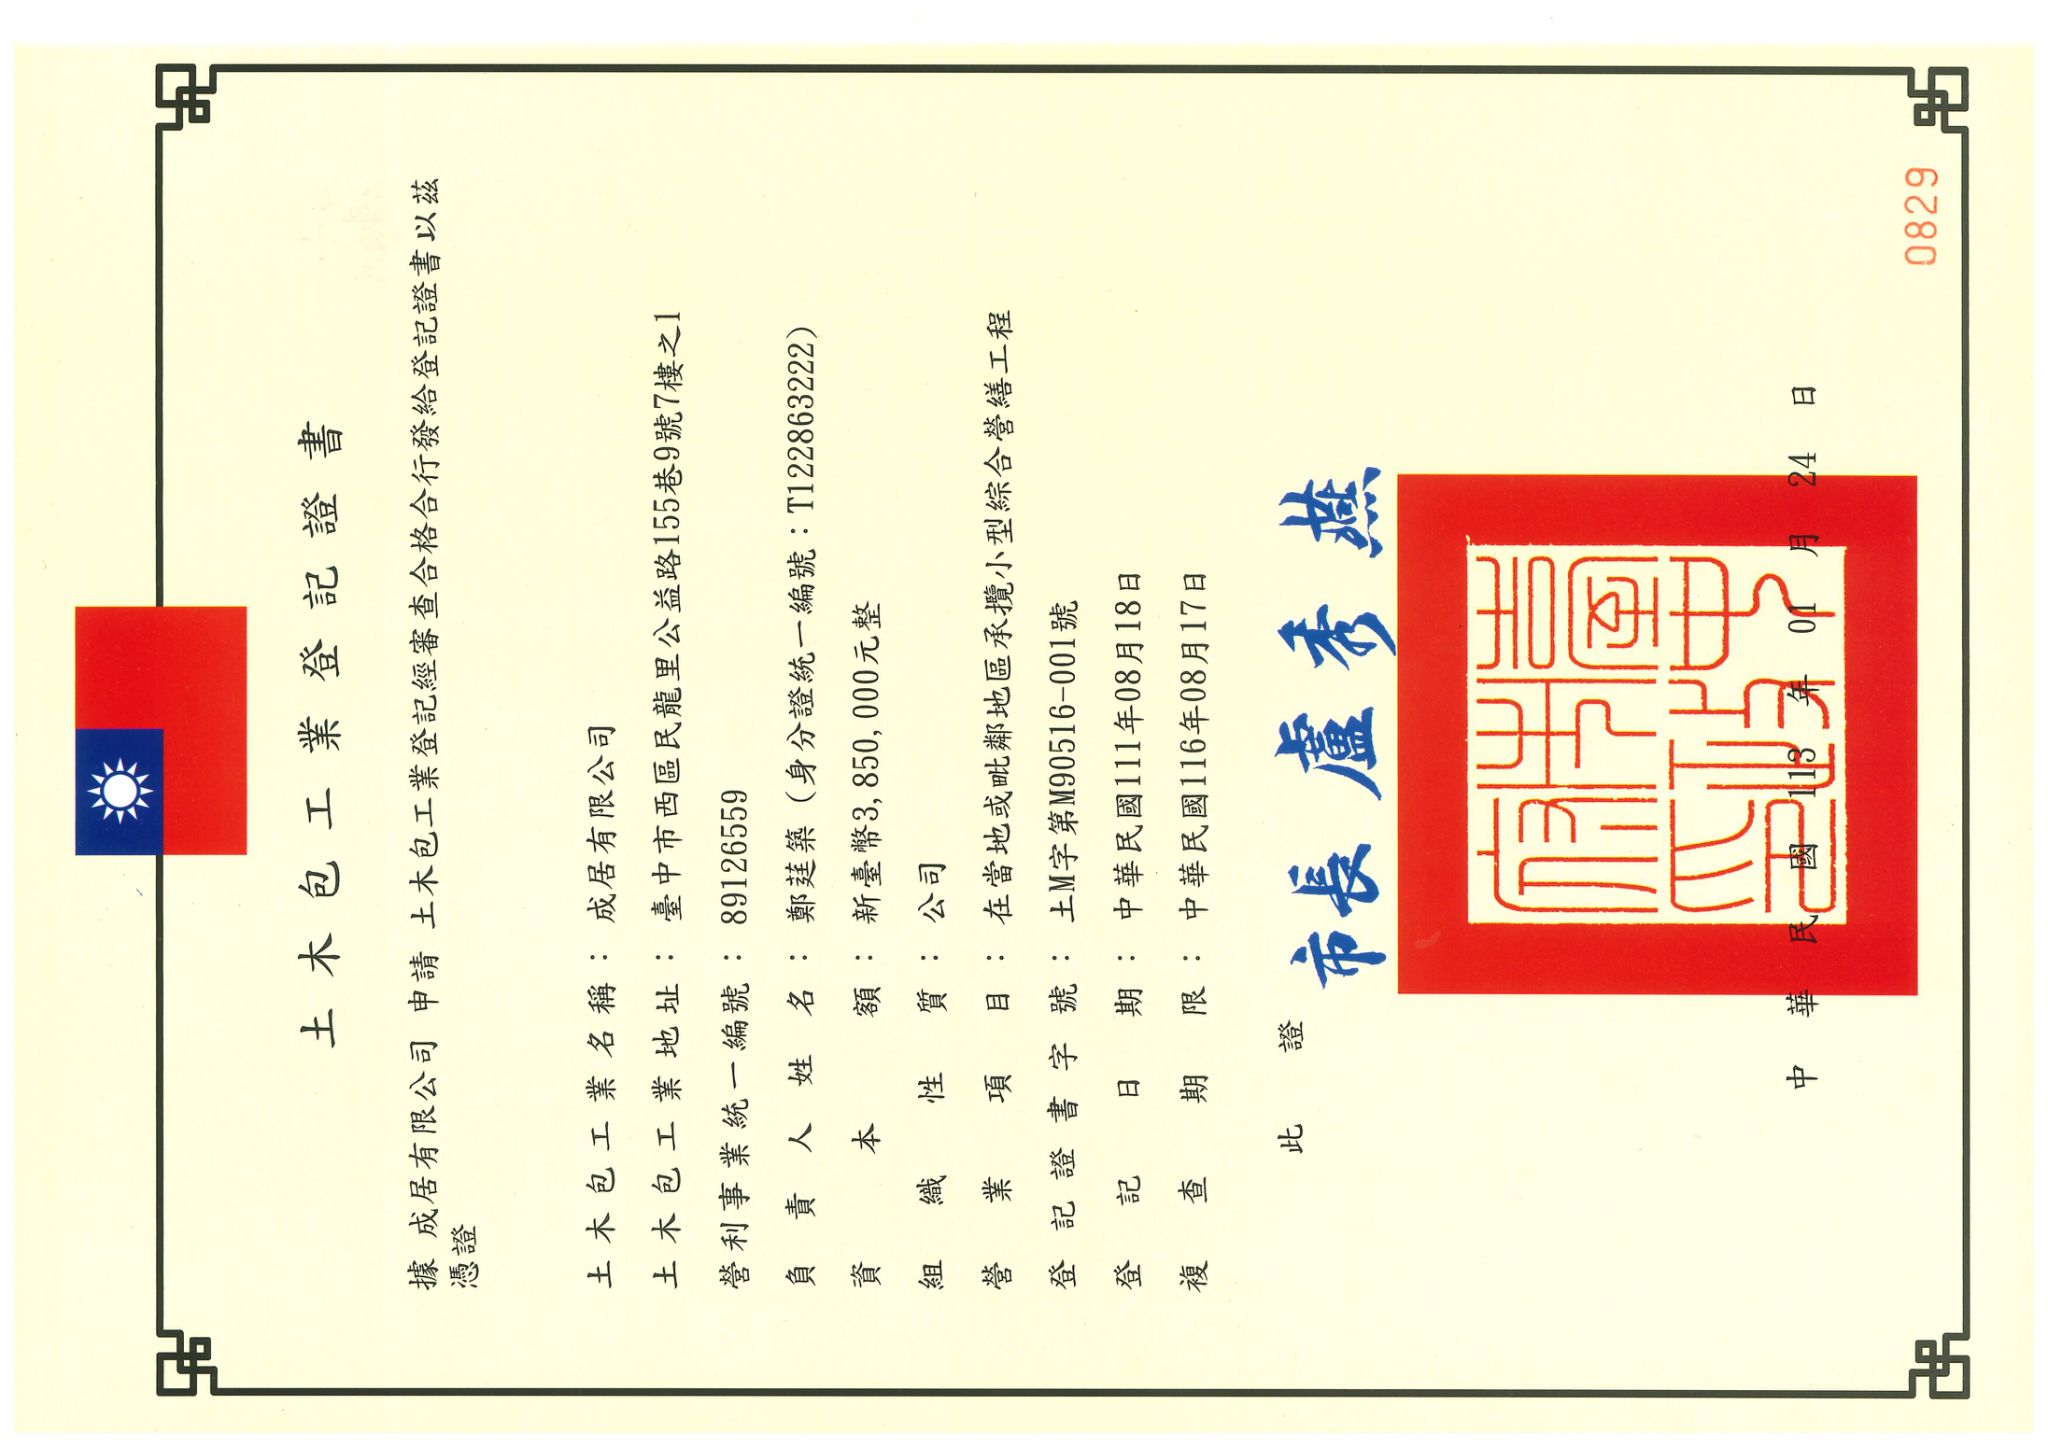 土木包工業登記證書
據 成居有限公司 申請 土木包工業登記經審查合格合行發給登記證書以茲
憑證
土木包工業名稱：成居有限公司
土木包工業地址：臺中市西區民龍里公益路155巷9號7樓之1
營利事業統一編號：89126559
負責人姓名：鄭莛築（身分證統一編號：T122863222）
資本額：新臺幣3,850,000元整
組織性質：公司
營業項目：在當地或毗鄰地區承攬小型綜合營繕工程
登記證書字號：土M字第M90516-001號
登記日期：中華民國111年08月18日
複查期限：中華民國116年08月17日
此證
市長 盧秀燕
中華民國 113 年 01 月 24 日
0829